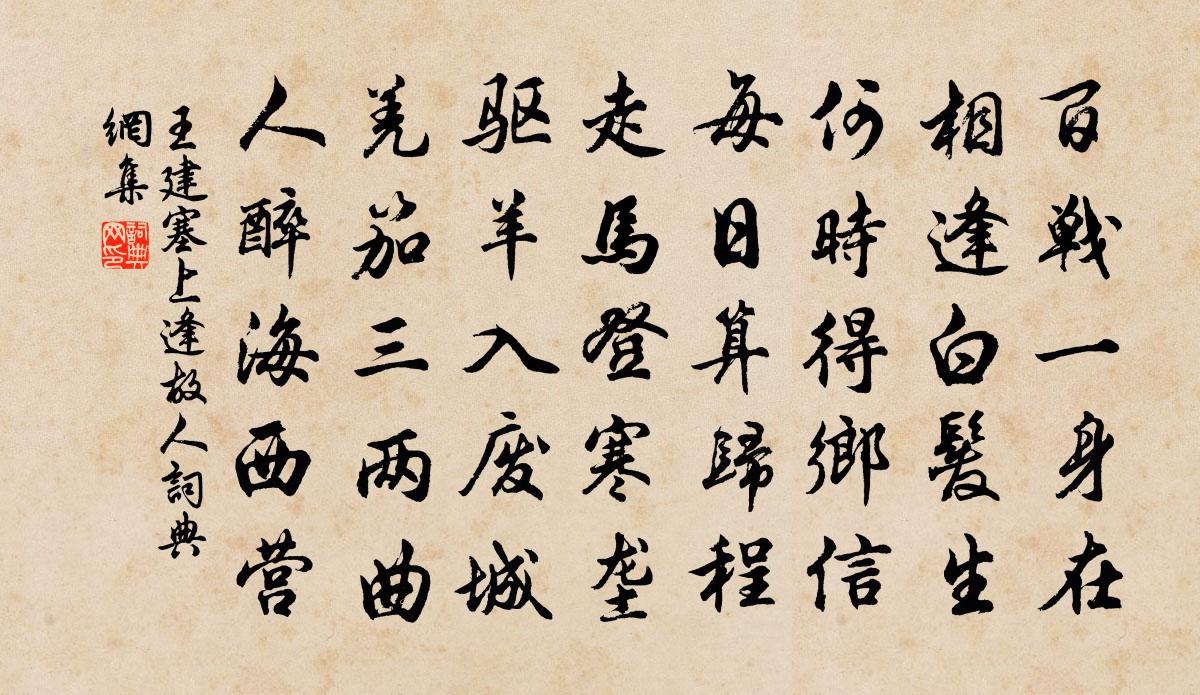 百戦一身在
相逢白髮生
何時得鄉信
每日算歸程
走馬登寒垄
驱羊入废城
羌笳三两曲
人醉海西营
王建塞上逢故人詞典
網集
詞典
网印